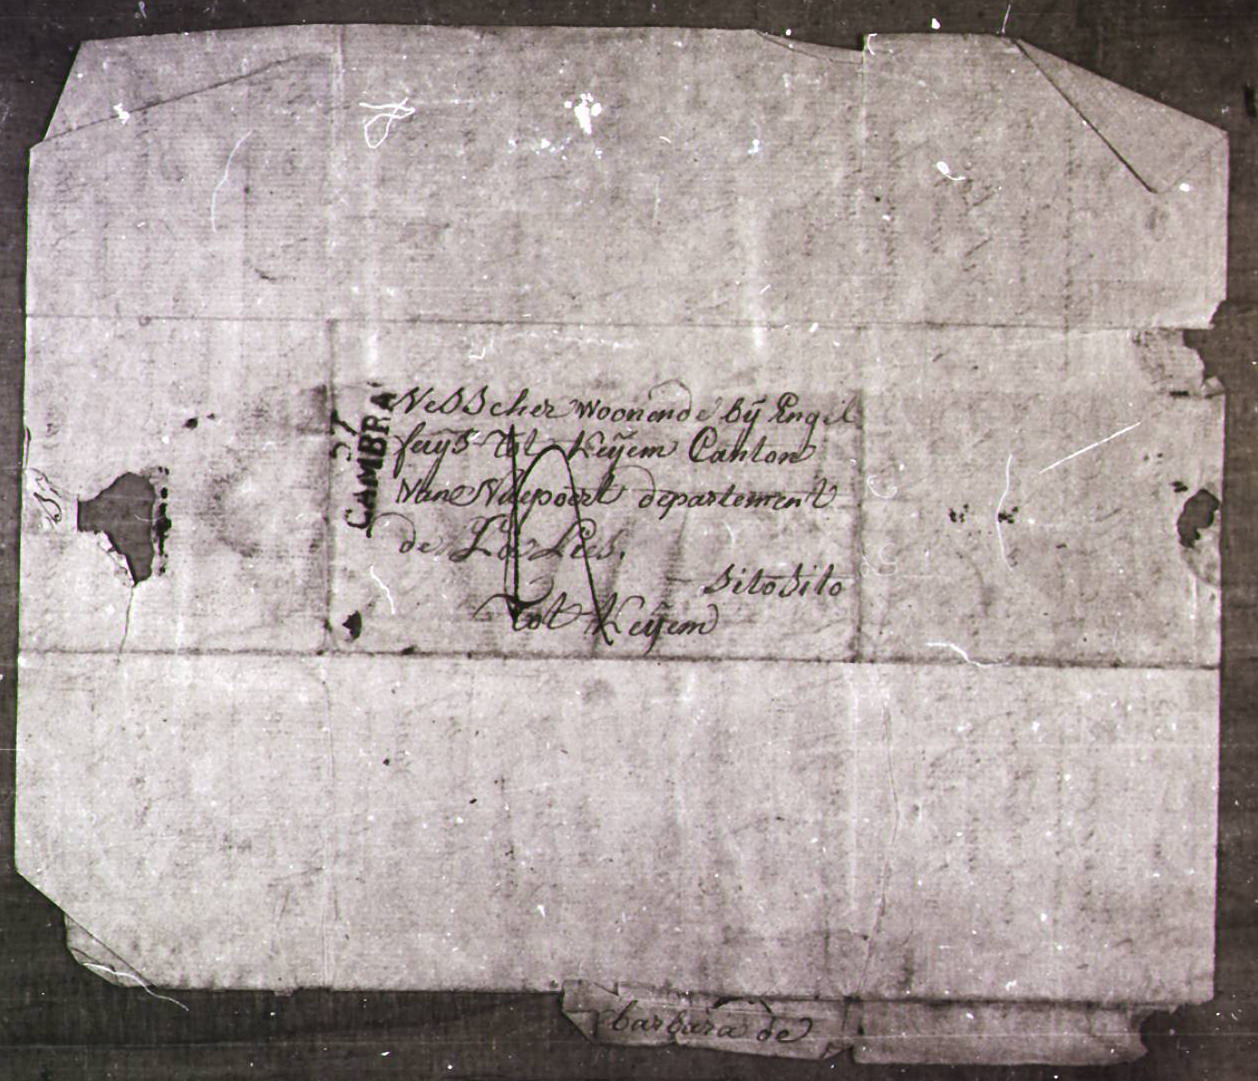 57
CAMBRA
Vesscher woonende bÿ Engel
faÿs Tot Keÿem Canton
Vane Niepoort departement
de La Lies.
Sito Sito
Tot Keÿem
barbara de